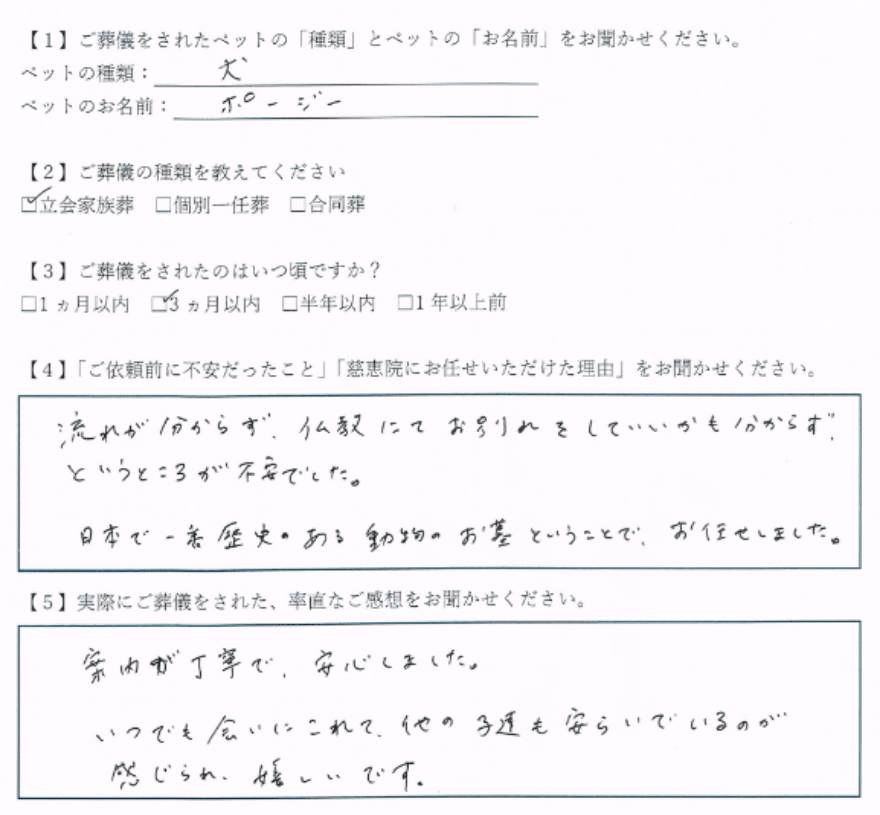 【1】ご葬儀をされたペットの「種類」とペットの「お名前」をお聞かせください。
ペットの種類： 犬
ペットのお名前： ポージー
【2】ご葬儀の種類を教えてください
☑立会家族葬 □個別一任葬 □合同葬
【3】ご葬儀をされたのはいつ頃ですか？
□1ヵ月以内 ☑3ヵ月以内 □半年以内 □1年以上前
【4】「ご依頼前に不安だったこと」「慈恵院にお任せいただけた理由」をお聞かせください。
流れが分からず、仏教にてお別れをしていいかも分からず、
というところが不安でした。
日本で一番歴史のある動物のお墓ということで、お任せしました。
【5】実際にご葬儀をされた、率直なご感想をお聞かせください。
案内が丁寧で、安心しました。
いつでも会いにこれて、他の子達も安らいでいるのが
感じられ、嬉しいです。